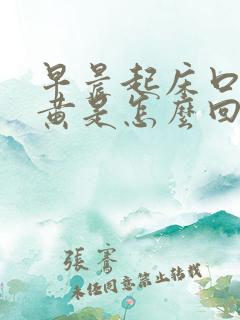 早晨起床口
黄是怎麽回
張賓
未经同意禁止转载